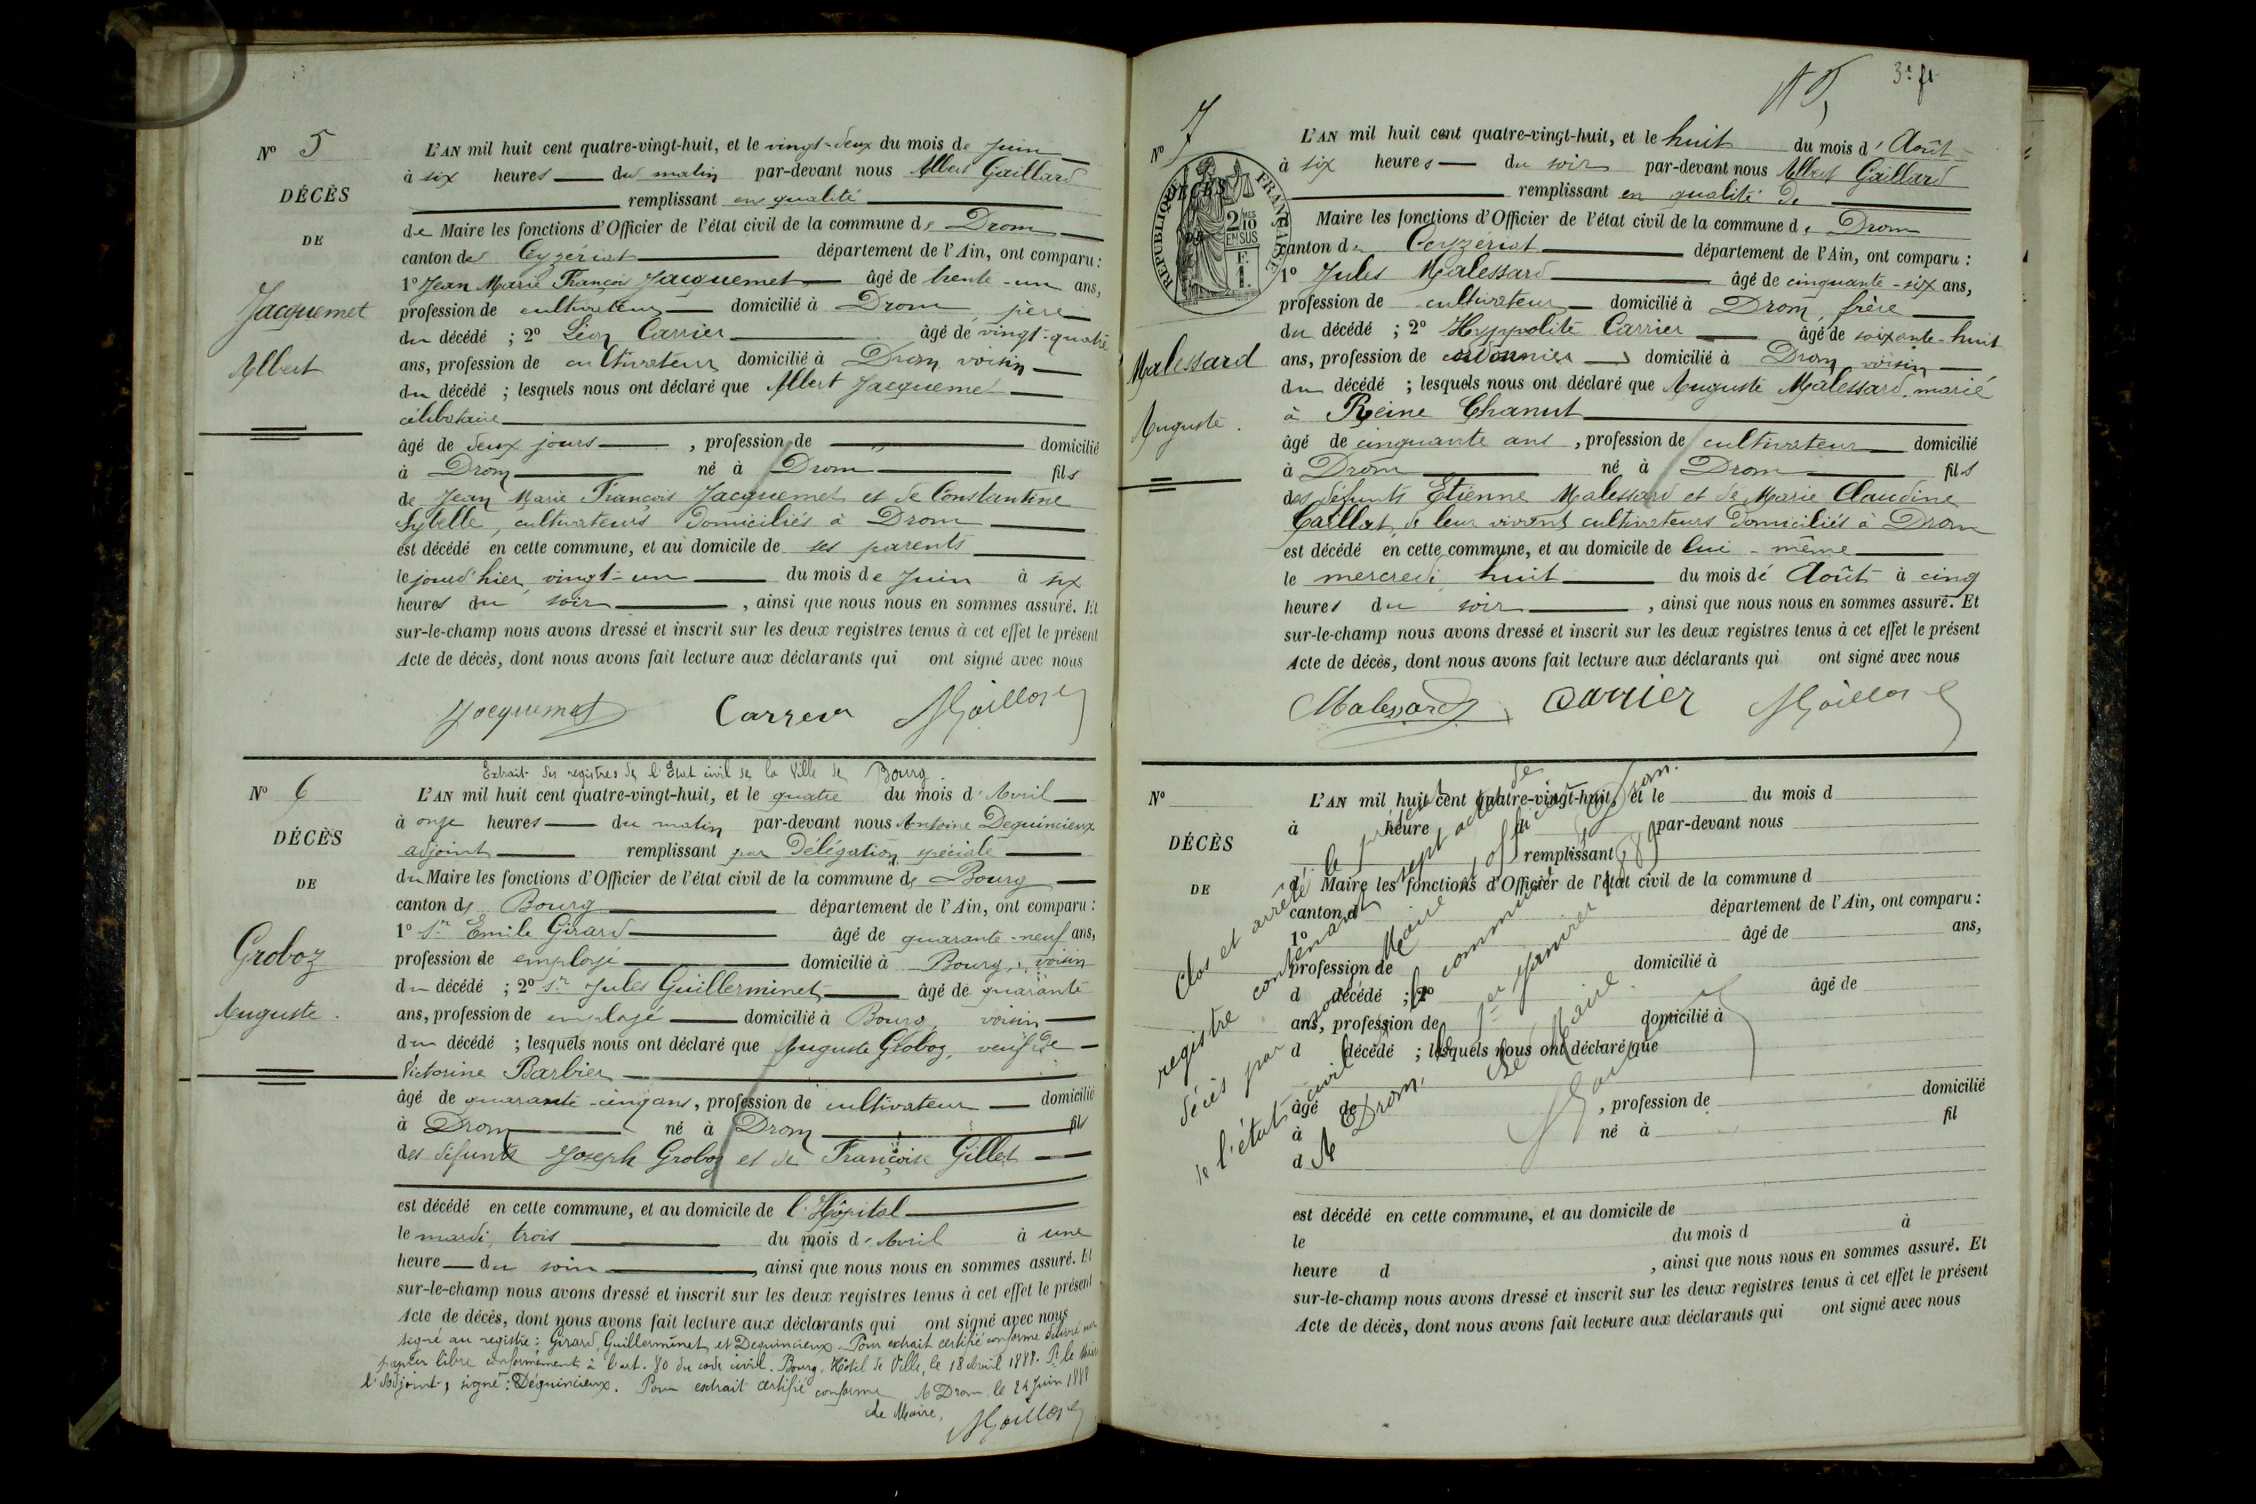 N° 5
DÉCÈS
DE
Jacquemet
Albert
L'AN mil huit cent quatre-vingt-huit, et le vingt-deux du mois de Juin
à six heures du matin par-devant nous Albert Gaillard
remplissant en qualité
de Maire les fonctions d'Officier de l'état civil de la commune de Drom
canton de Ceyzériat département de l'Ain, ont comparu :
1° Jean Marie François Jacquemet âgé de trente-un ans,
profession de cultivateur domicilié à Drom, père
du décédé ; 2° Léon Carrier âgé de vingt-quatre
ans, profession de cultivateur domicilié à Drom, voisin
du décédé ; lesquels nous ont déclaré que Albert Jacquemet
célibataire
âgé de deux jours, profession de domicilié
à Drom né à Drom fils
de Jean Marie François Jacquemet et de Constantine
Sybelle, cultivateurs domiciliés à Drom
est décédé en cette commune, et au domicile de ses parents
le jourd'hier, vingt-un du mois de Juin à six
heures du soir, ainsi que nous nous en sommes assuré. Et
sur-le-champ nous avons dressé et inscrit sur les deux registres tenus à cet effet le présent
Acte de décès, dont nous avons fait lecture aux déclarants qui ont signé avec nous
Jacquemet Carrier AGaillard
N° 6
DÉCÈS
DE
Groboz
Auguste.
Extrait des registres de l'Etat civil de la Ville de Bourg.
L'AN mil huit cent quatre-vingt-huit, et le quatre du mois d'Avril
à onze heures du matin par-devant nous Antoine Dequincieux
adjoint remplissant par délégation spéciale
du Maire les fonctions d'Officier de l'état civil de la commune de Bourg
canton de Bourg département de l'Ain, ont comparu :
1° Sr Emile Girard âgé de quarante-neuf ans,
profession de employé domicilié à Bourg, voisin
du décédé ; 2° Sr Jules Guillerminet âgé de quarante
ans, profession de employé domicilié à Bourg, voisin
du décédé ; lesquels nous ont déclaré que Auguste Groboz, veuf de
Victorine Barbier
âgé de quarante-cinq ans, profession de cultivateur domicilié
à Drom né à Drom fils
des défunts Joseph Groboz et de Françoise Gillet
est décédé en cette commune, et au domicile de l'Hôpital
le mardi, trois du mois d'Avril à une
heure du soir, ainsi que nous nous en sommes assuré. Et
sur-le-champ nous avons dressé et inscrit sur les deux registres tenus à cet effet le présent
Acte de décès, dont nous avons fait lecture aux déclarants qui ont signé avec nous
signé au registre : Girard, Guillerminet et Dequincieux. Pour extrait certifié conforme délivré sur
papier libre conformément à l'art. 80 du code civil. Bourg, Hôtel de Ville, le 18 Avril 1888. Pr le Maire
l'adjoint, signé : Dequincieux. Pour extrait certifié conforme A Drom, le 24 Juin 1888
Le Maire, AGaillard
3e ft
N° 7
RÉPUBLIQUE FRANÇAISE
2/10
EN SUS
F.
1.
DÉCÈS
DE
Malessard
Auguste.
L'AN mil huit cent quatre-vingt-huit, et le huit du mois d'Août
à six heures du soir par-devant nous Albert Gaillard
remplissant en qualité de
Maire les fonctions d'Officier de l'état civil de la commune de Drom
canton de Ceyzériat département de l'Ain, ont comparu :
1° Jules Malessard âgé de cinquante-six ans,
profession de cultivateur domicilié à Drom, frère
du décédé ; 2° Hyppolite Carrier âgé de soixante-huit
ans, profession de cordonnier domicilié à Drom voisin
du décédé ; lesquels nous ont déclaré que Auguste Malessard, marié
à Reine Chanut
âgé de cinquante ans, profession de cultivateur domicilié
à Drom né à Drom fils
des défunts Etienne Malessard et de Marie Claudine
Caillat, de leur vivant cultivateurs domiciliés à Drom
est décédé en cette commune, et au domicile de lui-même
le mercredi huit du mois de Août à cinq
heures du soir, ainsi que nous nous en sommes assuré. Et
sur-le-champ nous avons dressé et inscrit sur les deux registres tenus à cet effet le présent
Acte de décès, dont nous avons fait lecture aux déclarants qui ont signé avec nous
Malessard Carrier AGaillard
N°
DÉCÈS
DE
L'AN mil huit cent quatre-vingt-huit, et le du mois d
à heure du par-devant nous
remplissant
d Maire les fonctions d'Officier de l'état civil de la commune d
canton d département de l'Ain, ont comparu :
1° âgé de ans,
profession de domicilié à
d décédé ; 2° âgé de
ans, profession de domicilié à
d décédé ; lesquels nous ont déclaré que
âgé de , profession de domicilié
à né à fil
d
est décédé en cette commune, et au domicile de
le du mois d à
heure d , ainsi que nous nous en sommes assuré. Et
sur-le-champ nous avons dressé et inscrit sur les deux registres tenus à cet effet le présent
Acte de décès, dont nous avons fait lecture aux déclarants qui ont signé avec nous
Clos et arrêté le présent
registre contenant sept actes de
décès par nous Maire, officier
de l'état civil de la commune de Drom.
A Drom, le 1er Janvier 1889
Le Maire.
AGaillard